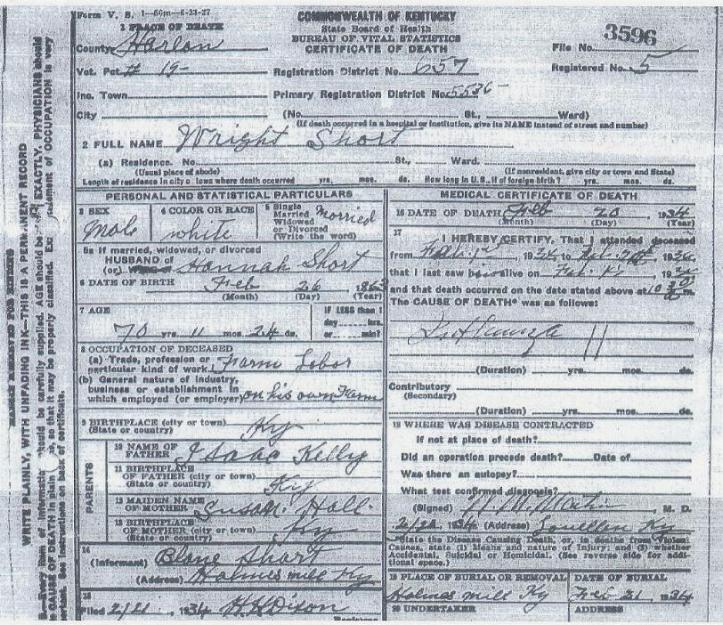 Form V. S. 1—50m—6-23-27
COMMONWEALTH OF KENTUCKY
State Board of Health
BUREAU OF VITAL STATISTICS
CERTIFICATE OF DEATH
3596
File No.
Registered No. 5
1 PLACE OF DEATH
County Harlan
Vot. Pct # 19-
Registration District No. 657
Inc. Town
Primary Registration District No.
City
(No. St., Ward)
(If death occurred in a hospital or institution, give its NAME instead of street and number)
2 FULL NAME Wright Short
(a) Residence. No. St., Ward.
(Usual place of abode) (If nonresident, give city or town and State)
Length of residence in city or town where death occurred yrs. mos. ds. How long in U. S., if of foreign birth? yrs. mos. ds.
PERSONAL AND STATISTICAL PARTICULARS
3 SEX
Male
4 COLOR OR RACE
white
5 Single
Married
Widowed
or Divorced
(Write the word)
Married
5a If married, widowed, or divorced
HUSBAND of
(or) Hannah Short
6 DATE OF BIRTH Feb 26 1863
(Month) (Day) (Year)
7 AGE
70 yrs. 11 mos. 24 ds.
If LESS than 1
day hrs.
or min?
8 OCCUPATION OF DECEASED
(a) Trade, profession or
particular kind of work Farm Labor
(b) General nature of industry,
business or establishment in
which employed (or employer) on his own Farm
9 BIRTHPLACE (city or town)
(State or country) Ky
PARENTS
10 NAME OF
FATHER Isaac Kelly
11 BIRTHPLACE
OF FATHER (city or town)
(State or country) Ky
12 MAIDEN NAME
OF MOTHER Susan Hall
13 BIRTHPLACE
OF MOTHER (city or town)
(State or country) Ky
14
(Informant) Blane Short
(Address) Holmes mill Ky
15
Filed 2/21, 1934 H H Dixon
MEDICAL CERTIFICATE OF DEATH
16 DATE OF DEATH Feb 20 1934
(Month) (Day) (Year)
17
I HEREBY CERTIFY, That I attended deceased
from 1934 to
that I last saw alive on
and that death occurred on the date stated above at
The CAUSE OF DEATH* was as follows:
Influenza 11
(Duration) yrs. mos. ds.
Contributory
(Secondary)
(Duration) yrs. mos. ds.
18 WHERE WAS DISEASE CONTRACTED
If not at place of death?
Did an operation precede death? Date of
Was there an autopsy?
What test confirmed diagnosis?
(Signed) M. D.
1934 (Address) Ky
*State the Disease Causing Death, or, in deaths from Violent
Causes, state (1) Means and nature of Injury; and (2) whether
Accidental, Suicidal or Homicidal. (See reverse side for addi-
tional space.)
19 PLACE OF BURIAL OR REMOVAL
Holmes mill Ky
DATE OF BURIAL
Feb 21 1934
20 UNDERTAKER
ADDRESS
WRITE PLAINLY, WITH UNFADING INK—THIS IS A PERMANENT RECORD